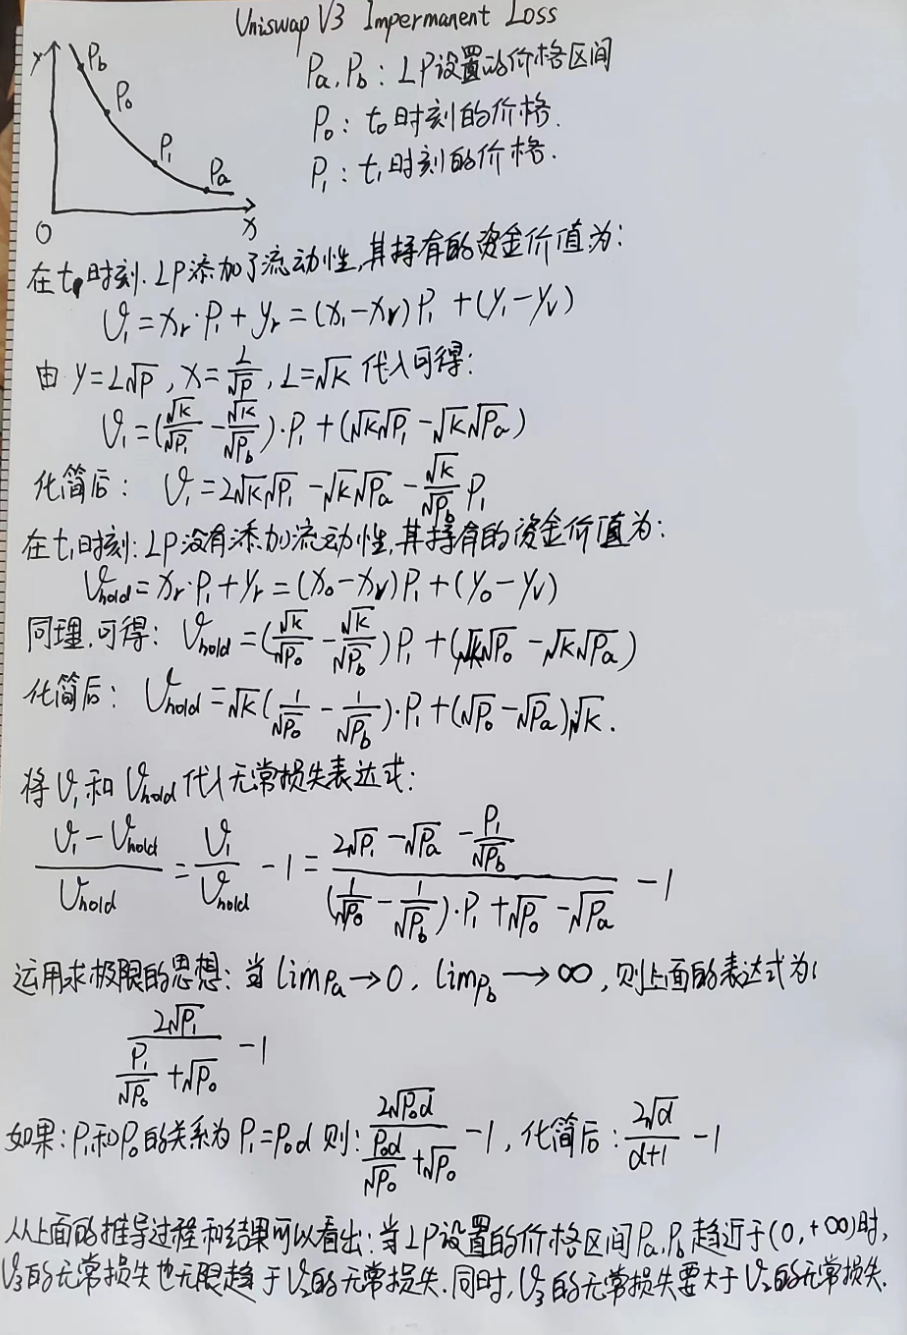 Uniswap V3 Impermanent Loss
y Pb P₀ P₁ Pa O x
Pa, Pb: LP设置的价格区间
P₀: t₀时刻的价格.
P₁: t₁时刻的价格.
在t₁时刻. LP添加了流动性,其持有的资金价值为:
V₁=xᵣ·P₁+yᵣ=(x₁-xᵥ)P₁+(y₁-yᵥ)
由 y=L√P, x=L/√P, L=√K 代入可得:
V₁=(√K/√P₁-√K/√Pb)·P₁+(√K√P₁-√K√Pa)
化简后: V₁=2√K√P₁-√K√Pa-√K/√Pb P₁
在t₁时刻:LP没有添加流动性,其持有的资金价值为:
Vhold=xᵣ·P₁+yᵣ=(x₀-xᵥ)P₁+(y₀-yᵥ)
同理.可得: Vhold=(√K/√P₀-√K/√Pb)P₁+(√K√P₀-√K√Pa)
化简后: Vhold=√K(1/√P₀-1/√Pb)·P₁+(√P₀-√Pa)√K.
将V₁和Vhold代入无常损失表达式:
(V₁-Vhold)/Vhold=V₁/Vhold-1=(2√P₁-√Pa-P₁/√Pb)/((1/√P₀-1/√Pb)·P₁+√P₀-√Pa)-1
运用求极限的思想:当limPa→0, limPb→∞,则上面的表达式为:
2√P₁/(P₁/√P₀+√P₀)-1
如果:P₁和P₀的关系为P₁=P₀d 则:2√P₀d/(P₀d/√P₀+√P₀)-1, 化简后:2√d/(d+1)-1
从上面的推导过程和结果可以看出:当LP设置的价格区间Pa,Pb趋近于(0,+∞)时,
V₃的无常损失也无限趋于V₂的无常损失.同时,V₃的无常损失要大于V₂的无常损失.